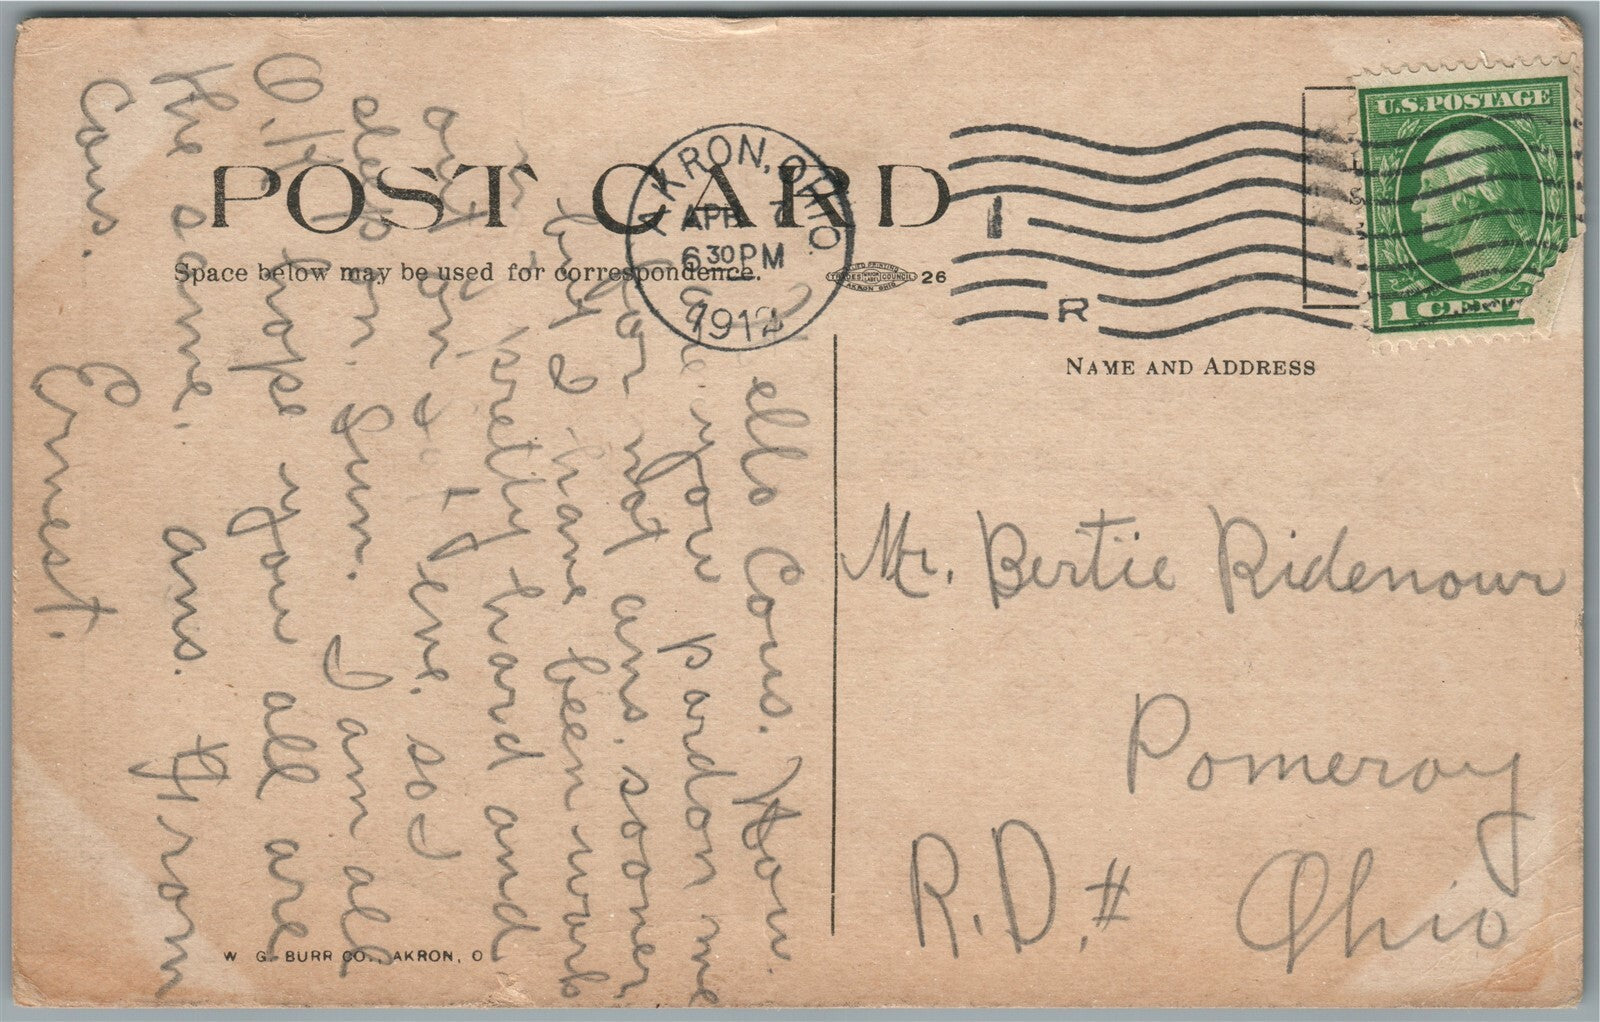 POST CARD
Space below may be used for correspondence.
26
AKRON, OHIO.
APR 7
6 30 PM
1912
R
U.S. POSTAGE
1 CENT
NAME AND ADDRESS
Mr. Bertie Ridenour
Pomeroy
R.D. # Ohio
ello Cous. How.
are you pardon me
for not ans. sooner
but I have been work
in pretty hard and
out on eve. so I
sleep on Sun. I am all
O.K. hope you all are
the same. ans. From
Cous. Ernest.
W. G. BURR CO., AKRON, O